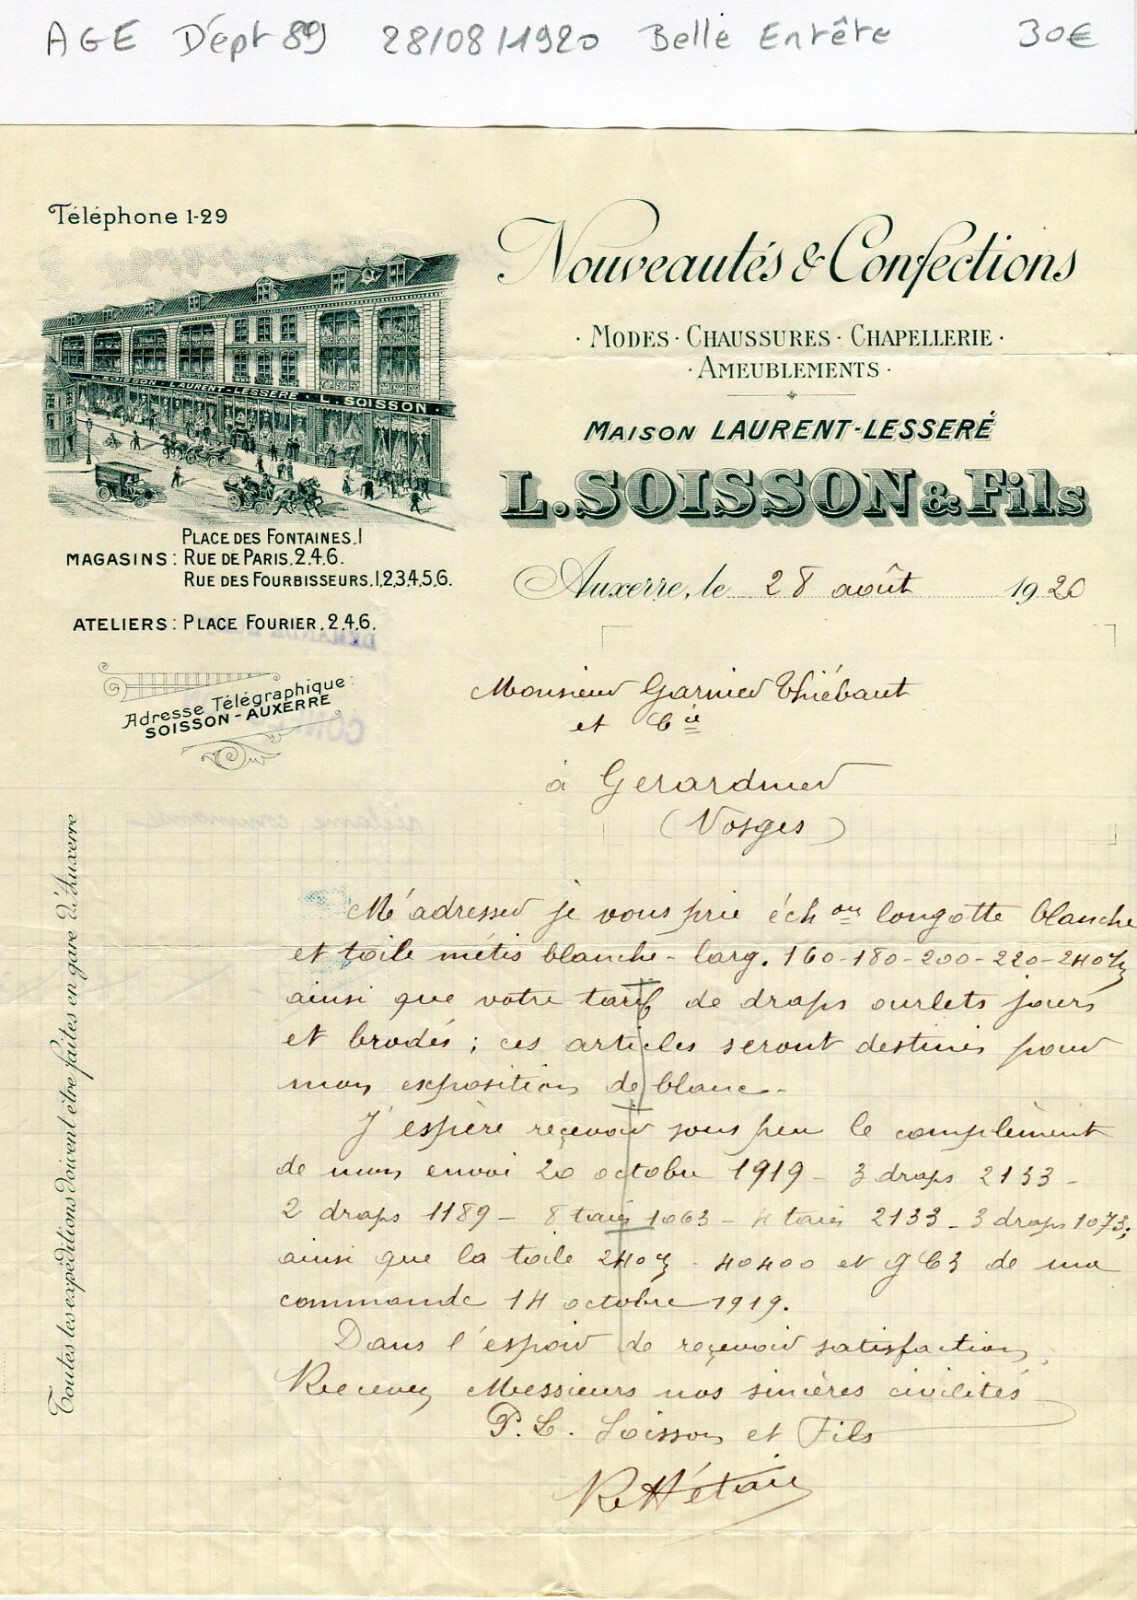 AGE Dépt 89 28/08/1920 Belle Entête 30€
Téléphone 1-29
Nouveautés & Confections
· MODES · CHAUSSURES · CHAPELLERIE ·
· AMEUBLEMENTS ·
MAISON LAURENT-LESSERÉ
L. SOISSON & Fils
L. SOISSON - LAURENT-LESSERÉ · L. SOISSON
PLACE DES FONTAINES, 1
MAGASINS : RUE DE PARIS, 2.4.6.
RUE DES FOURBISSEURS, 1,2,3,4,5,6.
ATELIERS : PLACE FOURIER, 2.4.6.
Adresse Télégraphique :
SOISSON - AUXERRE
Auxerre, le 28 août 1920
Monsieur Garnier Thiébaut
et Cie
à Gerardmer
(Vosges)
Toutes les expéditions doivent être faites en gare d'Auxerre
M'adresser je vous prie échons longotte blanche
et toile métis blanche - larg. 160-180-200-220-240
ainsi que votre tarif de draps ourlets jours
et brodés ; ces articles seront destinés pour
mon exposition de blanc -
J'espère reçevoir sous peu le complèment
de mon envoi 20 octobre 1919 - 3 draps 2133 -
2 draps 1189 - 8 taies 1063 - 4 taies 2133 - 3 draps 1073;
ainsi que la toile 240 - 40400 et de ma
commande 14 octobre 1919.
Dans l'espoir de reçevoir satisfaction,
Recevez Messieurs nos sincères civilités
P. L. Soisson et Fils